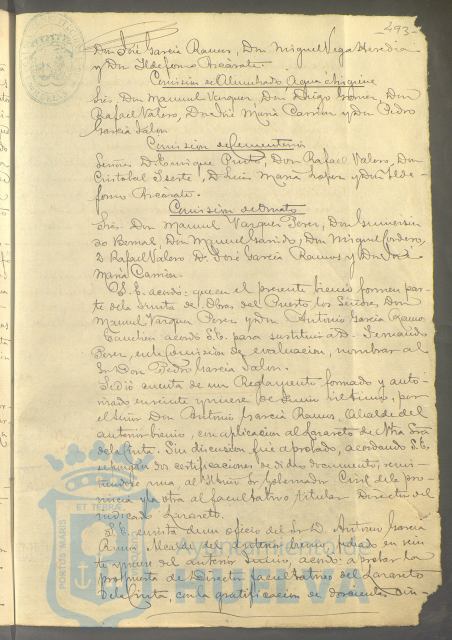 - 493 -
Don José García Ramos, Don Miguel Vega Heredia
y Don Ildefonso Alcárate.
Comision de Alumbrado Agua é higiene
Sres. Don Manuel Vazquez, Don Diego Gomez, Don
Rafael Valero, Don José María Carrion y Don Pedro
García Jalon.
Comision de Cementerio
Señores D. Enrique Don Rafael Valero, Don
Cristobal D. Luis María Lopez y Don Ilde-
fonso Alcárate.
Comision de Ornato
Sres. Don Manuel Vazquez Perez, Don Gumersin
do Bernal, Don Manuel Garrido, Don Miguel Cordero,
D. Rafael Valero D. José García Ramos y Don José
María Carrion.
S. E. acordó: que en el presente bienio formen par
te de la Junta de Obras del Puerto los Señores, Don
Manuel Vazquez Perez y Don Antonio García Ramos
Tambien acordó S. E. para sustituir á D. Fernando
Perez, en la Comision de evaluacion, nombrar al
Sr. Don Pedro García Jalon.
Se dió cuenta de un Reglamento formado y auto-
rizado en veinte y nueve de Junio ultimo, por
el Señor Don Antonio García Ramos, Alcalde del
anterior bienio, con aplicacion al Lazareto de Ntra Sra
de la Cinta. Sin discusion fué aprobado, acordando S. E.
se pongan dos certificaciones de dicho documento, remi-
tiendose una, al Iltmo Sr Gobernador Civil de la pro-
vincia y la otra al facultativo titular Director del
indicado Lazareto.
S. E. en vista de un oficio del Sr. D. Antonio García
Ramos, Alcalde del anterior bienio, fechado en vein
te y nueve del anterior Junio, acordó aprobar la
propuesta de Director facultativo del Lazareto
de la Cinta, con la gratificacion de doscientas cin-
PORTUS MARIS
ET TERRAE
Ayuntamiento de
HUELVA